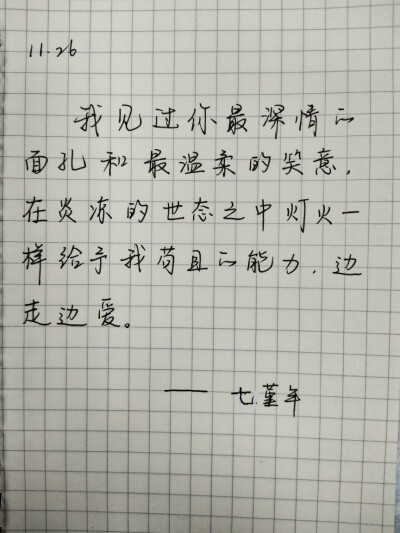 11.26
我见过你最深情的
面孔和最温柔的笑意，
在炎凉的世态之中灯火一
样给予我苟且的能力，边
走边爱。
—— 七堇年